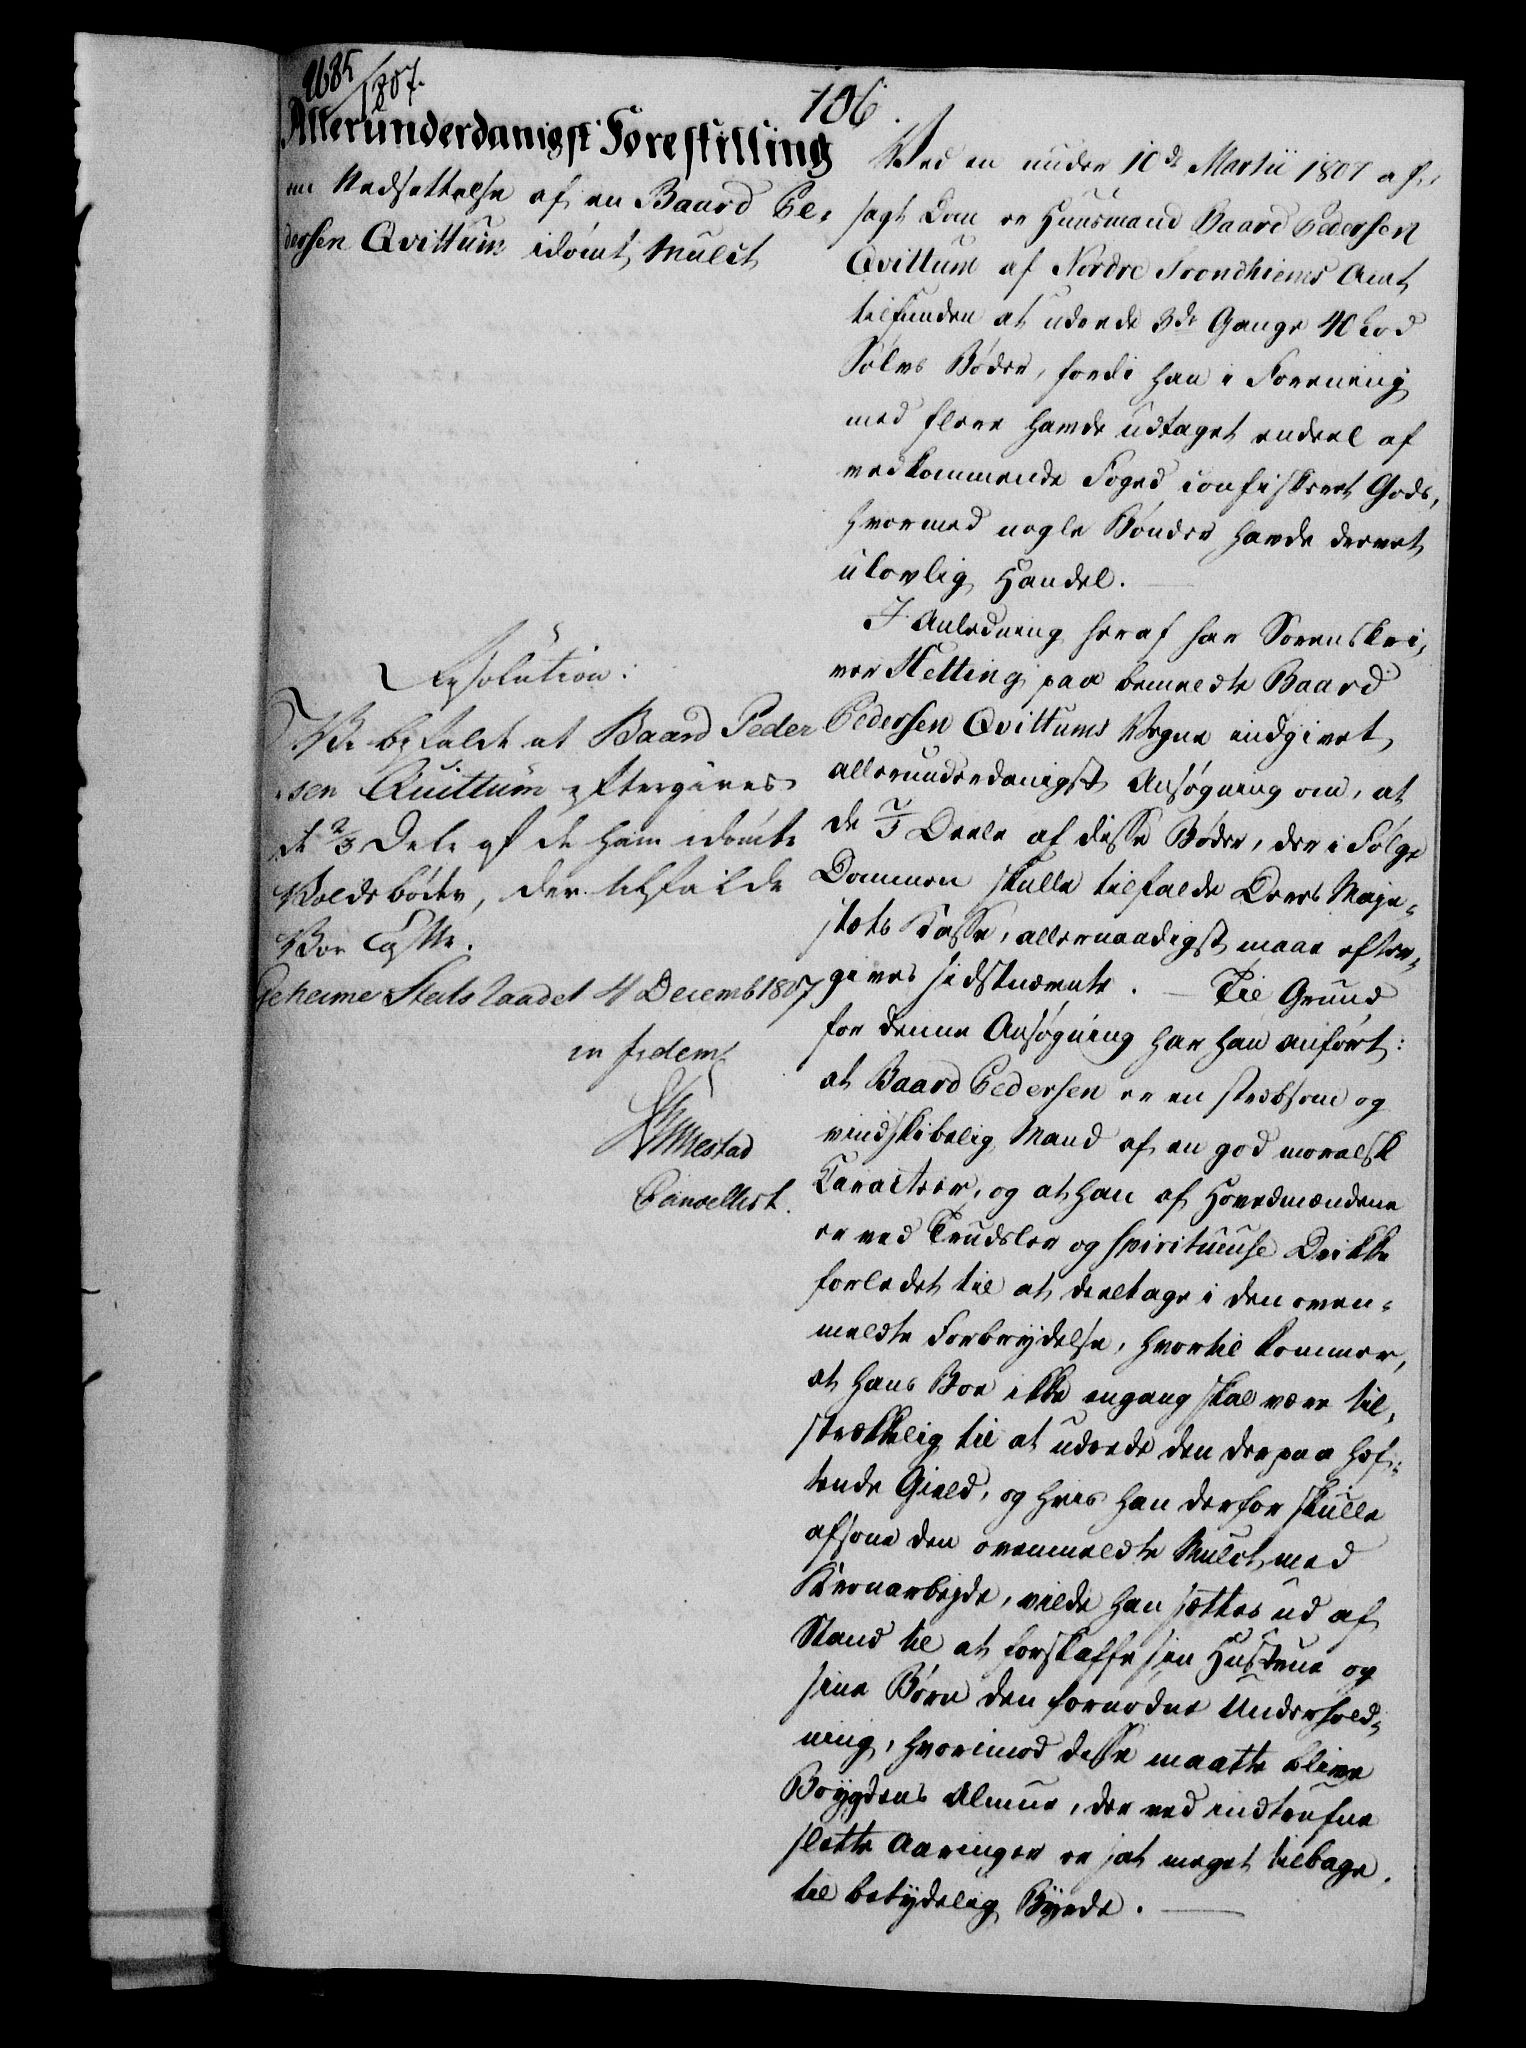 2685/1807.
106.
Allerunderdanigst Forestilling
om Nedsættelse af en Baard Pe-
dersen Qvittum idömt Mulct
Resolution:
Vi befale at Baard Peder
sen Quittum eftergives
de 2/3 Dele af de ham idömte
Voldsböder, der tilfalde
Vor Casse.
Geheime Stats Raadet 4 Decemb 1807
in fidem
Cancellist.
Ved en under 10de Martii 1807 af-
sagt Dom er Huusmand Baard Pedersen
Qvittum af Nordre Trondhiems Amt
tilfunden at udrede 3de Gange 40 Lod
Sölvs Böder, fordi han i Forening
med flere havde udtaget endeel af
vedkommende Foged confiskeret Gods,
hvormed nogle Bönder havde drevet
ulovlig Handel.
I Anledning heraf har Sorenskri-
ver Hetting paa bemeldte Baard
Pedersen Qvittums Vegne indgivet
allerunderdanigst Ansögning om, at
de 2/3 Deele af disse Böder, der i Fölge
Dommen skulle tilfalde Deres Maje-
stæts Kasse, allernaadigst maae efter-
gives sidstnævnte. — Til Grund
for denne Ansögning har han anfört:
at Baard Pedersen er en stræbsom og
vindskibelig Mand af en god moralsk
Karacteer, og at han af Hovedmændene
er ved Trudsler og spirituuse Drikke
forledet til at deeltage i den oven-
meldte Forbrydelse, hvortil kommer,
at hans Boe ikke engang skal være til-
strækkelig til at udrede den derpaa hæf-
tende Gield, og hvis han derfor skulle
afsone den ovenmeldte Mulct med
Kronarbejde, vilde han sættes ud af
Stand til at forskaffe sin Hustrue og
sine Börn den fornödne Underhold-
ning, hvorimod disse maatte blive
Bøygdens Almue, der ved indtrufne
slette Aaringer er sat meget tilbage,
til betydelig Byrde. —